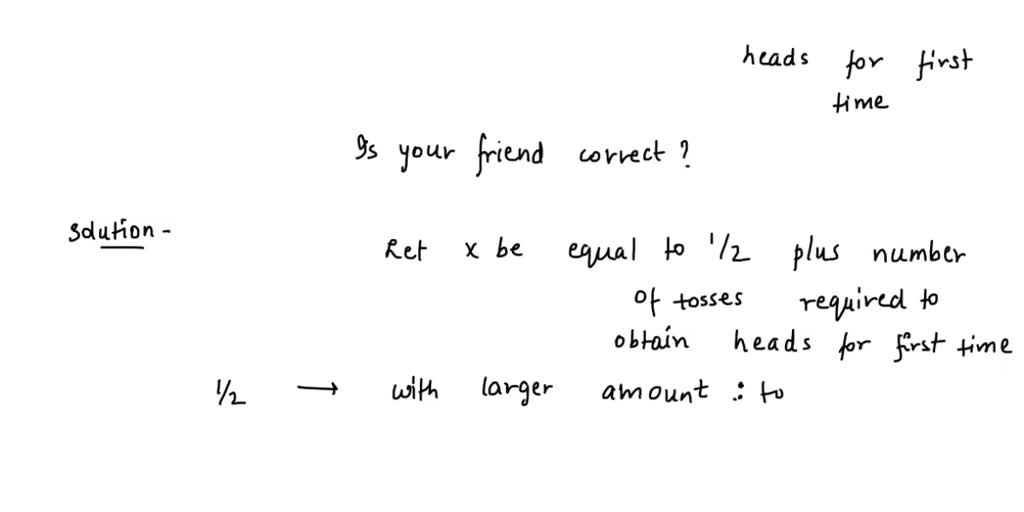 heads for first
time
Is your friend correct?
Solution -
Let x be equal to 1/2 plus number
of tosses required to
obtain heads for first time
1/2 → with larger amount : to